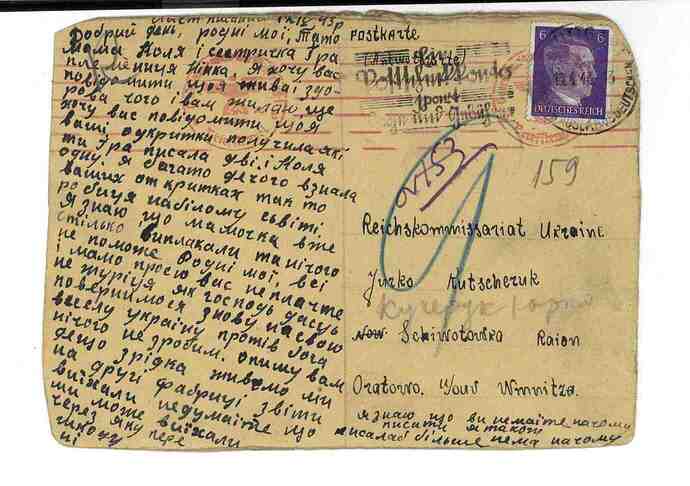 Лист писаний 1 IX 43 р
Добрий день, родні мої, Тато
мама Ноля і сестричка Гра
племениця Нінка. Я хочу вас
повідомити що я жива, здо-
рова чого і вам желаю ще
хочу вас повідомити що я
ваші одкритки получила які
ти Гра писала дві. і Ноля
одну, я багато дечого взнала
ваших откритках так то
робиця на білому сьвіті.
Я знаю що мамочка вже
стілько виплакали та нічого
не поможе Родні мої, всі
і мамо прошу вас не плачте
не журіця як господь дасть
повернимося знову на свою
веселу україну протів бога
нічого не зробим. опишу вам
дещо зрідка живемо ми
на другі фабриці звіти
виїхали недумайте що
ми може виїхали
через яку
ні пере
Postkarte
(Antwortkarte)
Ein
Postscheckkonto
spart
DEUTSCHES REICH
6 6
159
Reichskommissariat Ukraine
Jurko Kutscheruk
Кучерук Юрко
Schiwotowka Raion
Oratowo. Winnitza.
я знаю що ви немаїте начому
писати я також
писалаб більше нема начому